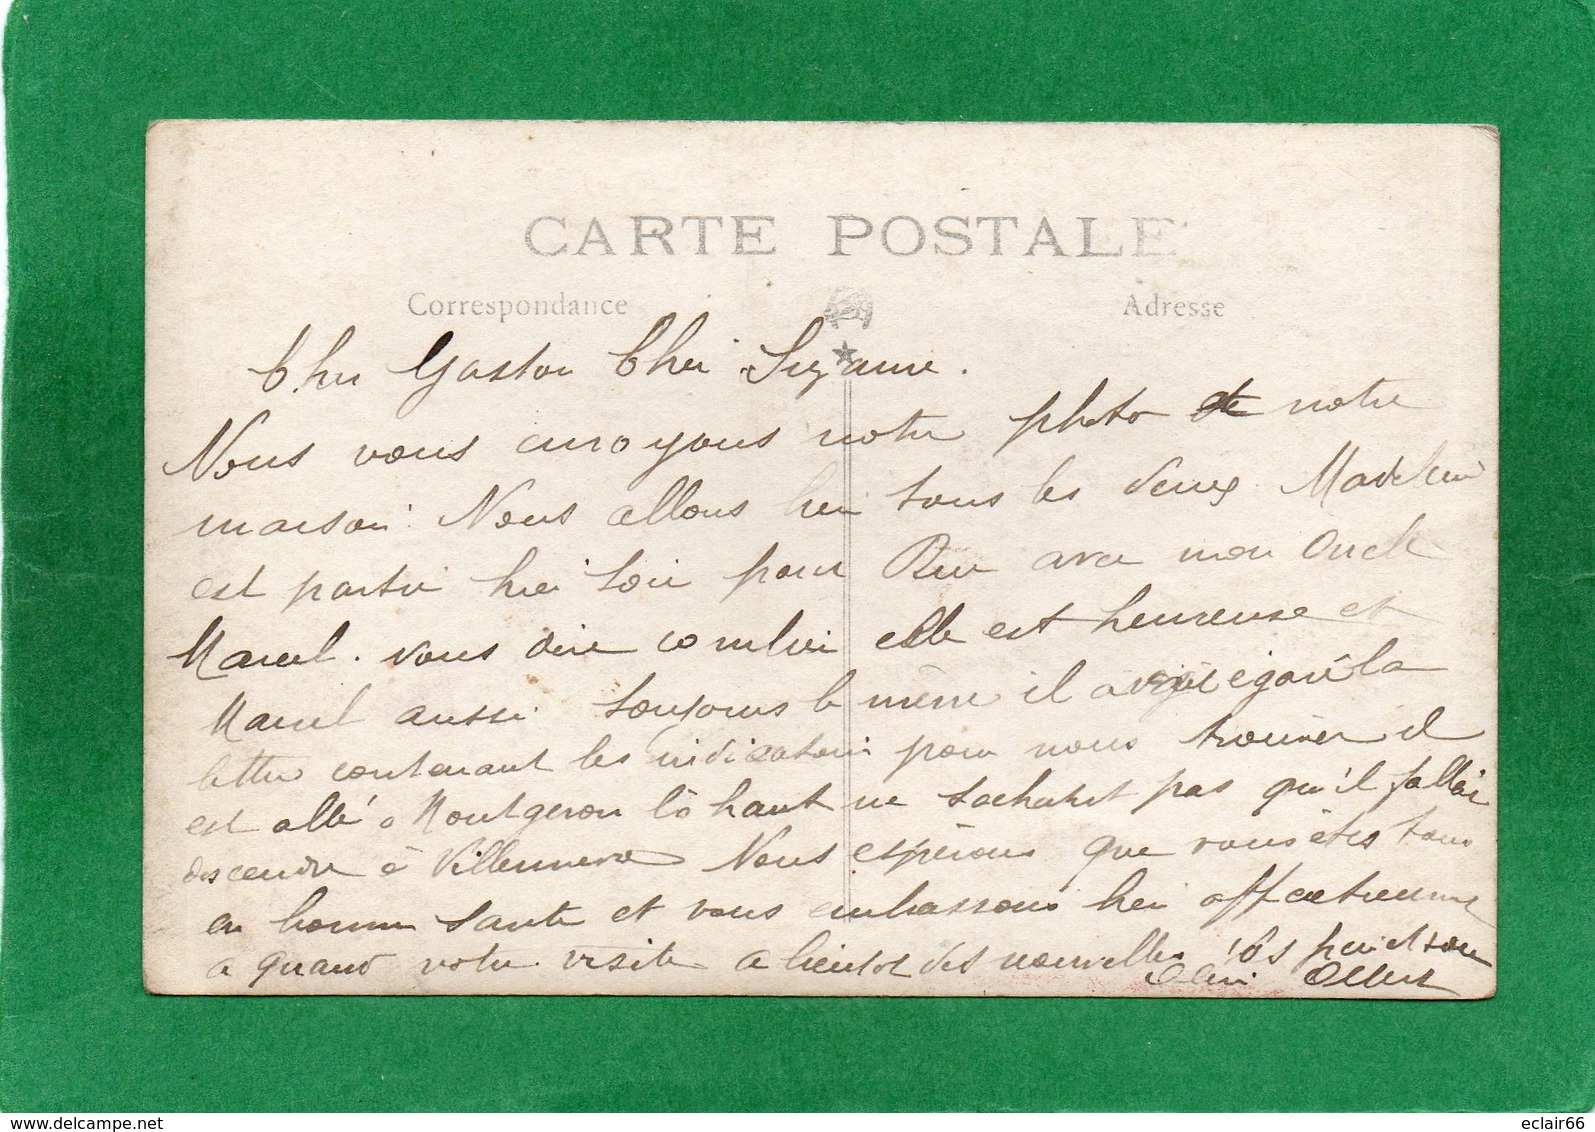 CARTE POSTALE
Correspondance Adresse
Cher Gaston Cher Suzanne.
Nous vous envoyons notre photo et notre
maison. Nous allons bien tous les deux Madeleine
est partie hier soir pour avec mon Oncle
Marcel. vous dire combien elle est heureuse et
Marcel aussi toujours le même il avait égaré la
lettre contenant les indications pour nous trouver il
est allé a Montgeron là haut ne sachant pas qu'il fallait
descendre à Villeneuve Nous espérons que vous êtes tous
en bonne santé et vous embrassons bien affectueusement
a quand votre visite a bientot des nouvelles
eclair66